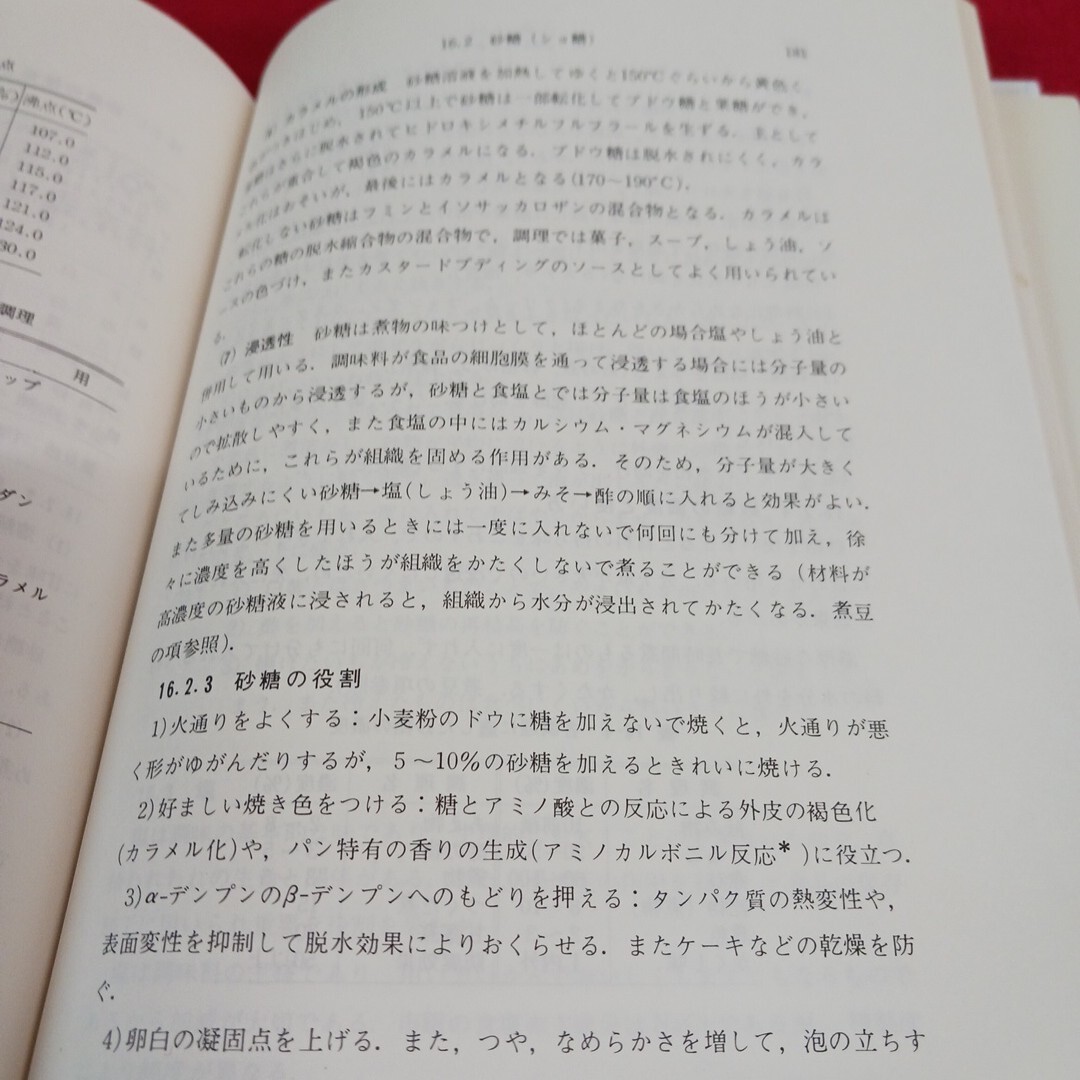 点
%) 沸点(℃)
107.0
112.0
115.0
117.0
121.0
124.0
30.0
調理
用
ップ
ダン
ラメル
16.2 砂糖（ショ糖）
カラメルの形成 砂糖溶液を加熱してゆくと150℃ぐらいから黄色く
はじめ，150℃以上で砂糖は一部転化してブドウ糖と果糖ができ，
さらに脱水されてヒドロキシメチルフルフラールを生ずる．主として
これらが重合して褐色のカラメルになる．ブドウ糖は脱水されにくく，カラ
化はおそいが，最後にはカラメルとなる(170～190℃)．
転化しない砂糖はフミンとイソサッカロザンの混合物となる．カラメルは
これらの糖の脱水縮合物の混合物で，調理では菓子，スープ，しょう油，ソ
ースの色づけ，またカスタードプディングのソースとしてよく用いられてい
る．
(7) 浸透性 砂糖は煮物の味つけとして，ほとんどの場合塩やしょう油と
併用して用いる．調味料が食品の細胞膜を通って浸透する場合には分子量の
小さいものから浸透するが，砂糖と食塩とでは分子量は食塩のほうが小さい
ので拡散しやすく，また食塩の中にはカルシウム・マグネシウムが混入して
いるために，これらが組織を固める作用がある．そのため，分子量が大きく
てしみ込みにくい砂糖→塩(しょう油)→みそ→酢の順に入れると効果がよい．
また多量の砂糖を用いるときには一度に入れないで何回にも分けて加え，徐
々に濃度を高くしたほうが組織をかたくしないで煮ることができる（材料が
高濃度の砂糖液に浸されると，組織から水分が浸出されてかたくなる．煮豆
の項参照)．
16.2.3 砂糖の役割
1)火通りをよくする：小麦粉のドウに糖を加えないで焼くと，火通りが悪
く形がゆがんだりするが，5～10%の砂糖を加えるときれいに焼ける．
2)好ましい焼き色をつける：糖とアミノ酸との反応による外皮の褐色化
(カラメル化)や，パン特有の香りの生成(アミノカルボニル反応*)に役立つ．
3)α-デンプンのβ-デンプンへのもどりを押える：タンパク質の熱変性や，
表面変性を抑制して脱水効果によりおくらせる．またケーキなどの乾燥を防
ぐ．
4)卵白の凝固点を上げる．また，つや，なめらかさを増して，泡の立ちす